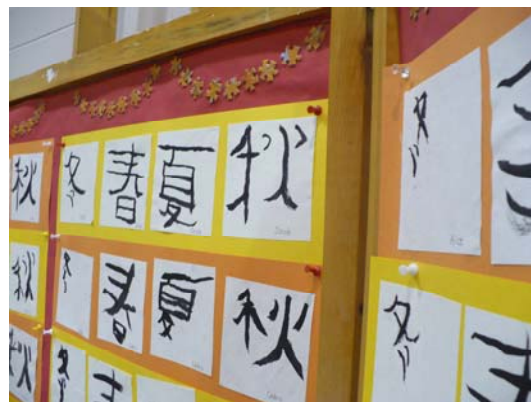 秋 冬 春 夏 秋 冬
秋 冬 春 夏 秋 冬
秋 冬 春